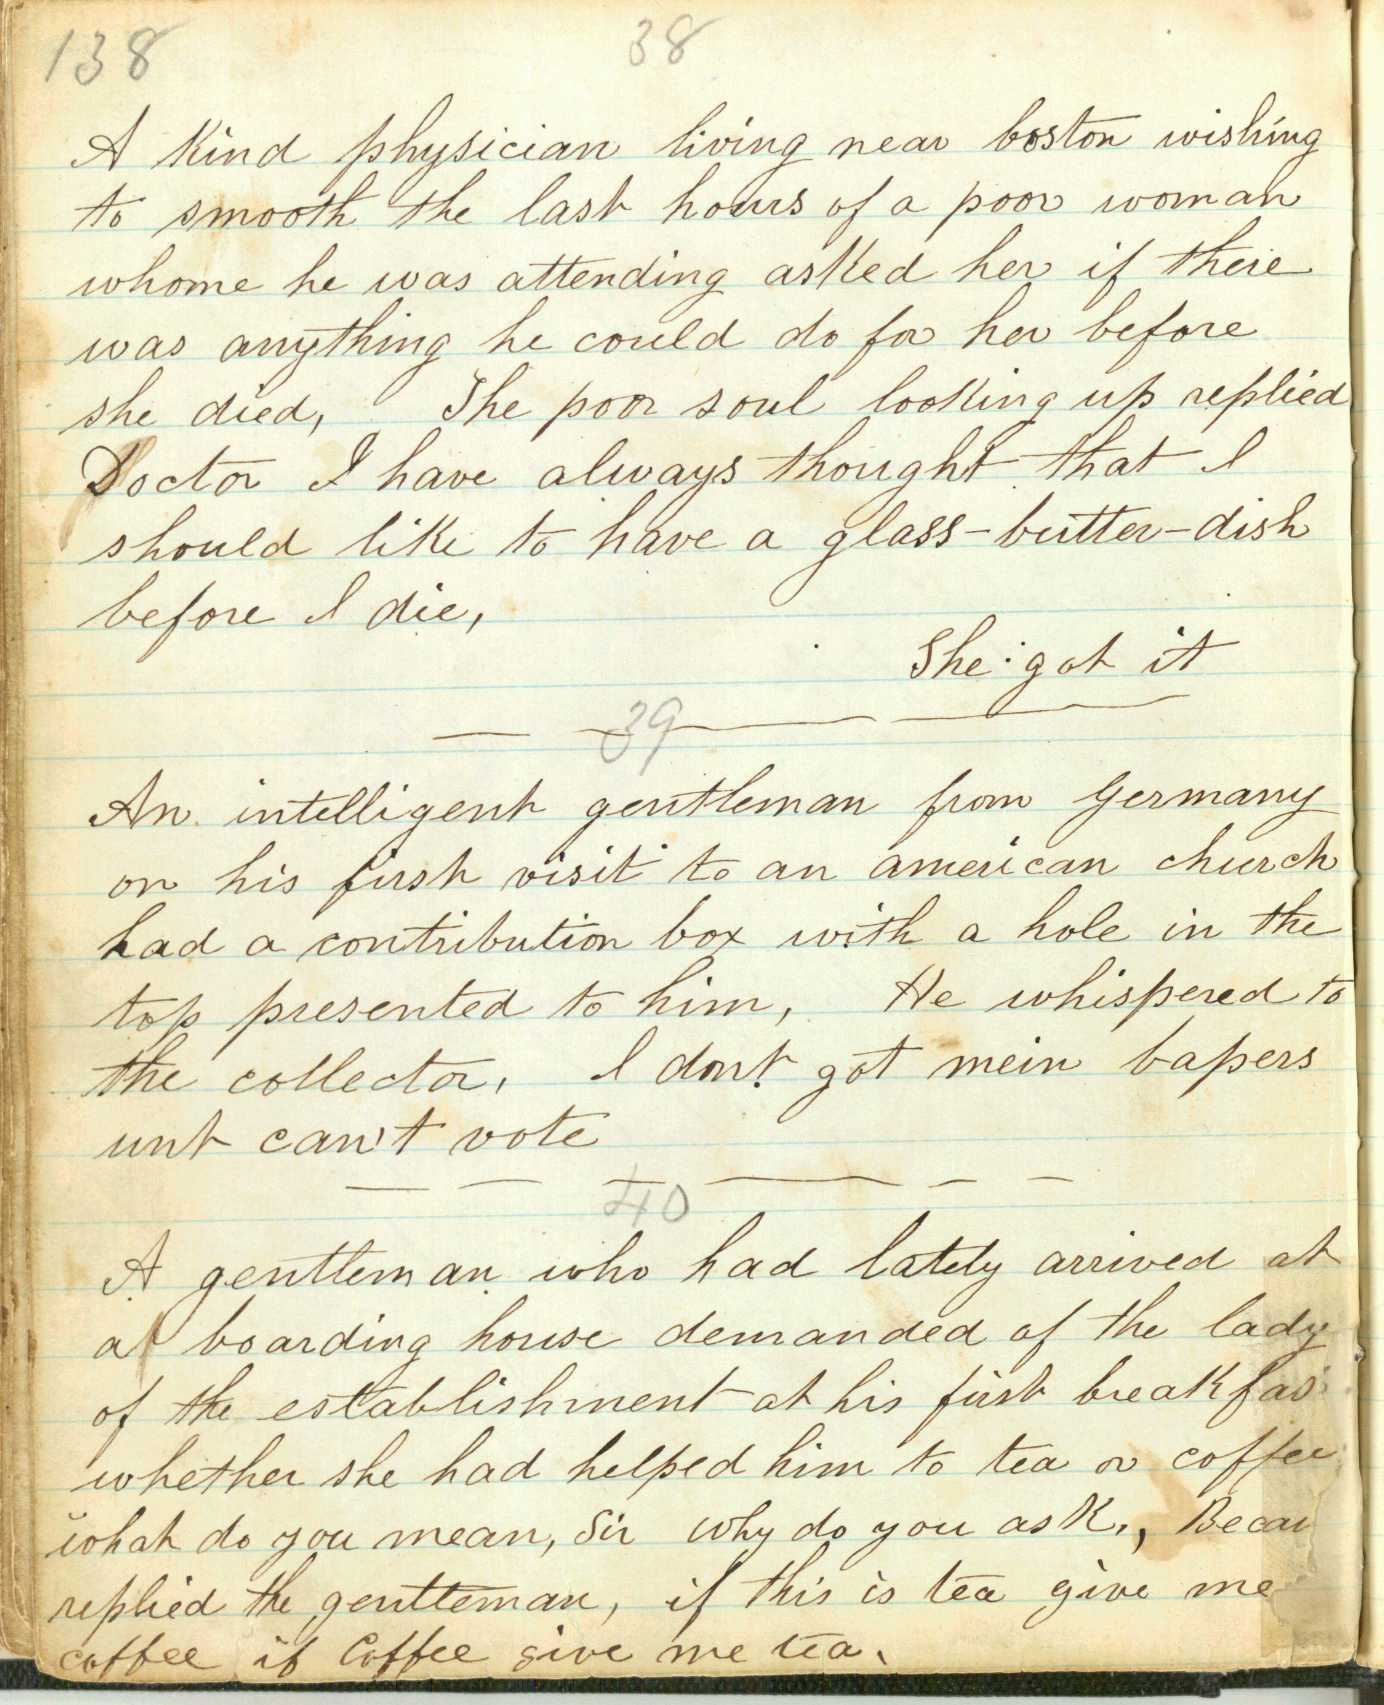 138 38
A kind physician living near boston wishing
to smooth the last hours of a poor woman
whome he was attending asked her if there
was anything he could do for her before
she died, The poor soul looking up replied
Doctor I have always thought that I
should like to have a glass-butter-dish
before I die,
She got it
39
An intelligent gentleman from Germany
on his first visit to an american church
had a contribution box with a hole in the
top presented to him, He whispered to
the collector, I don't got mein bapers
unt can't vote
40
A gentleman who had lately arrived at
a boarding house demanded of the lady
of the establishment at his first breakfas
whether she had helped him to tea or coffee
"what do you mean, Sir why do you ask., Becau
replied the gentleman, if this is tea give me
coffee if Coffee give me tea.